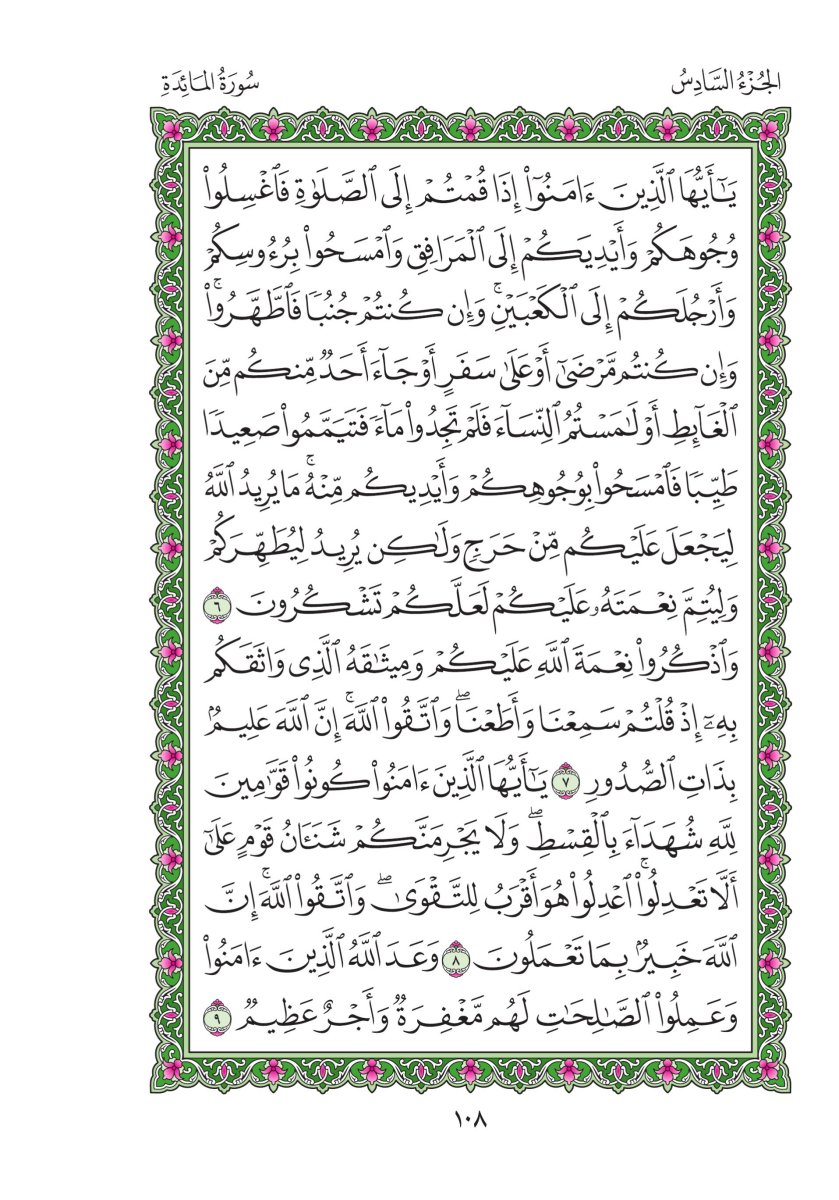 الجُزْءُ السَّادِسُ
سُورَةُ المَائِدَةِ
يَٰٓأَيُّهَا ٱلَّذِينَ ءَامَنُوٓا۟ إِذَا قُمْتُمْ إِلَى ٱلصَّلَوٰةِ فَٱغْسِلُوا۟
وُجُوهَكُمْ وَأَيْدِيَكُمْ إِلَى ٱلْمَرَافِقِ وَٱمْسَحُوا۟ بِرُءُوسِكُمْ
وَأَرْجُلَكُمْ إِلَى ٱلْكَعْبَيْنِۚ وَإِن كُنتُمْ جُنُبًا فَٱطَّهَّرُوا۟ۚ
وَإِن كُنتُم مَّرْضَىٰٓ أَوْ عَلَىٰ سَفَرٍ أَوْ جَآءَ أَحَدٌ مِّنكُم مِّنَ
ٱلْغَآئِطِ أَوْ لَٰمَسْتُمُ ٱلنِّسَآءَ فَلَمْ تَجِدُوا۟ مَآءً فَتَيَمَّمُوا۟ صَعِيدًا
طَيِّبًا فَٱمْسَحُوا۟ بِوُجُوهِكُمْ وَأَيْدِيكُم مِّنْهُۚ مَا يُرِيدُ ٱللَّهُ
لِيَجْعَلَ عَلَيْكُم مِّنْ حَرَجٍ وَلَٰكِن يُرِيدُ لِيُطَهِّرَكُمْ
وَلِيُتِمَّ نِعْمَتَهُۥ عَلَيْكُمْ لَعَلَّكُمْ تَشْكُرُونَ ٦
وَٱذْكُرُوا۟ نِعْمَةَ ٱللَّهِ عَلَيْكُمْ وَمِيثَٰقَهُ ٱلَّذِى وَاثَقَكُم
بِهِۦٓ إِذْ قُلْتُمْ سَمِعْنَا وَأَطَعْنَاۖ وَٱتَّقُوا۟ ٱللَّهَۚ إِنَّ ٱللَّهَ عَلِيمٌۢ
بِذَاتِ ٱلصُّدُورِ ٧ يَٰٓأَيُّهَا ٱلَّذِينَ ءَامَنُوا۟ كُونُوا۟ قَوَّٰمِينَ
لِلَّهِ شُهَدَآءَ بِٱلْقِسْطِۖ وَلَا يَجْرِمَنَّكُمْ شَنَـَٔانُ قَوْمٍ عَلَىٰٓ
أَلَّا تَعْدِلُوا۟ۚ ٱعْدِلُوا۟ هُوَ أَقْرَبُ لِلتَّقْوَىٰۖ وَٱتَّقُوا۟ ٱللَّهَۚ إِنَّ
ٱللَّهَ خَبِيرٌۢ بِمَا تَعْمَلُونَ ٨ وَعَدَ ٱللَّهُ ٱلَّذِينَ ءَامَنُوا۟
وَعَمِلُوا۟ ٱلصَّٰلِحَٰتِ لَهُم مَّغْفِرَةٌ وَأَجْرٌ عَظِيمٌ ٩
١٠٨